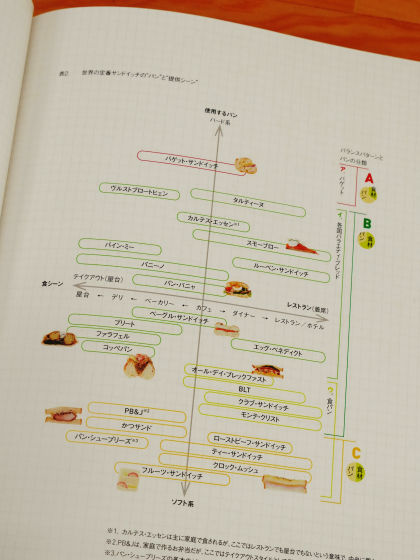 表2. 世界の定番サンドイッチの"パン"と"提供シーン"
使用するパン
ハード系
バランスパターンと
パンの分類
A
ア
バゲット
パン
食材
バゲット・サンドイッチ
ヴルストブロートヒェン
タルティーヌ
カルテス・エッセン※1
スモーブロー
パイン・ミー
パニーノ
ルーベン・サンドイッチ
パン・バーニャ
B
イ
各国バラエティ・ブレッド
パン
食材
テイクアウト(屋台)
食シーン
レストラン(着席)
屋台 ← デリ ← ベーカリー ← カフェ → ダイナー → レストラン/ホテル
ベーグル・サンドイッチ
ブリート
ファラフェル
コッペパン
エッグ・ベネディクト
オール・デイ・ブレックファスト
BLT
クラブ・サンドイッチ
モンテ・クリスト
ウ
食パン
PB&J※2
かつサンド
パン・シュープリーズ※3
ローストビーフ・サンドイッチ
ティー・サンドイッチ
クロック・ムッシュ
フルーツ・サンドイッチ
C
パン
食材
ソフト系
※1. カルテス・エッセンは主に家庭で食されるが、ここではレストランでも屋台でもないという意味で、中央に
※2.PB&Jは、家庭で作るお弁当だが、ここではテイクアウトスタイルとして
※3.パン・シュープリーズの基本の